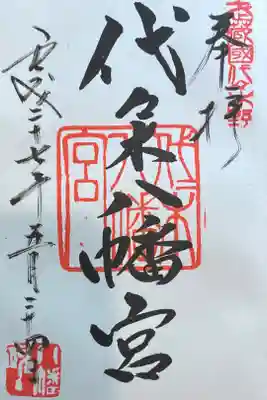 武蔵國代々木野
奉拝
代々木八幡宮
代々木八幡宮
平成二十七年五月二十四日